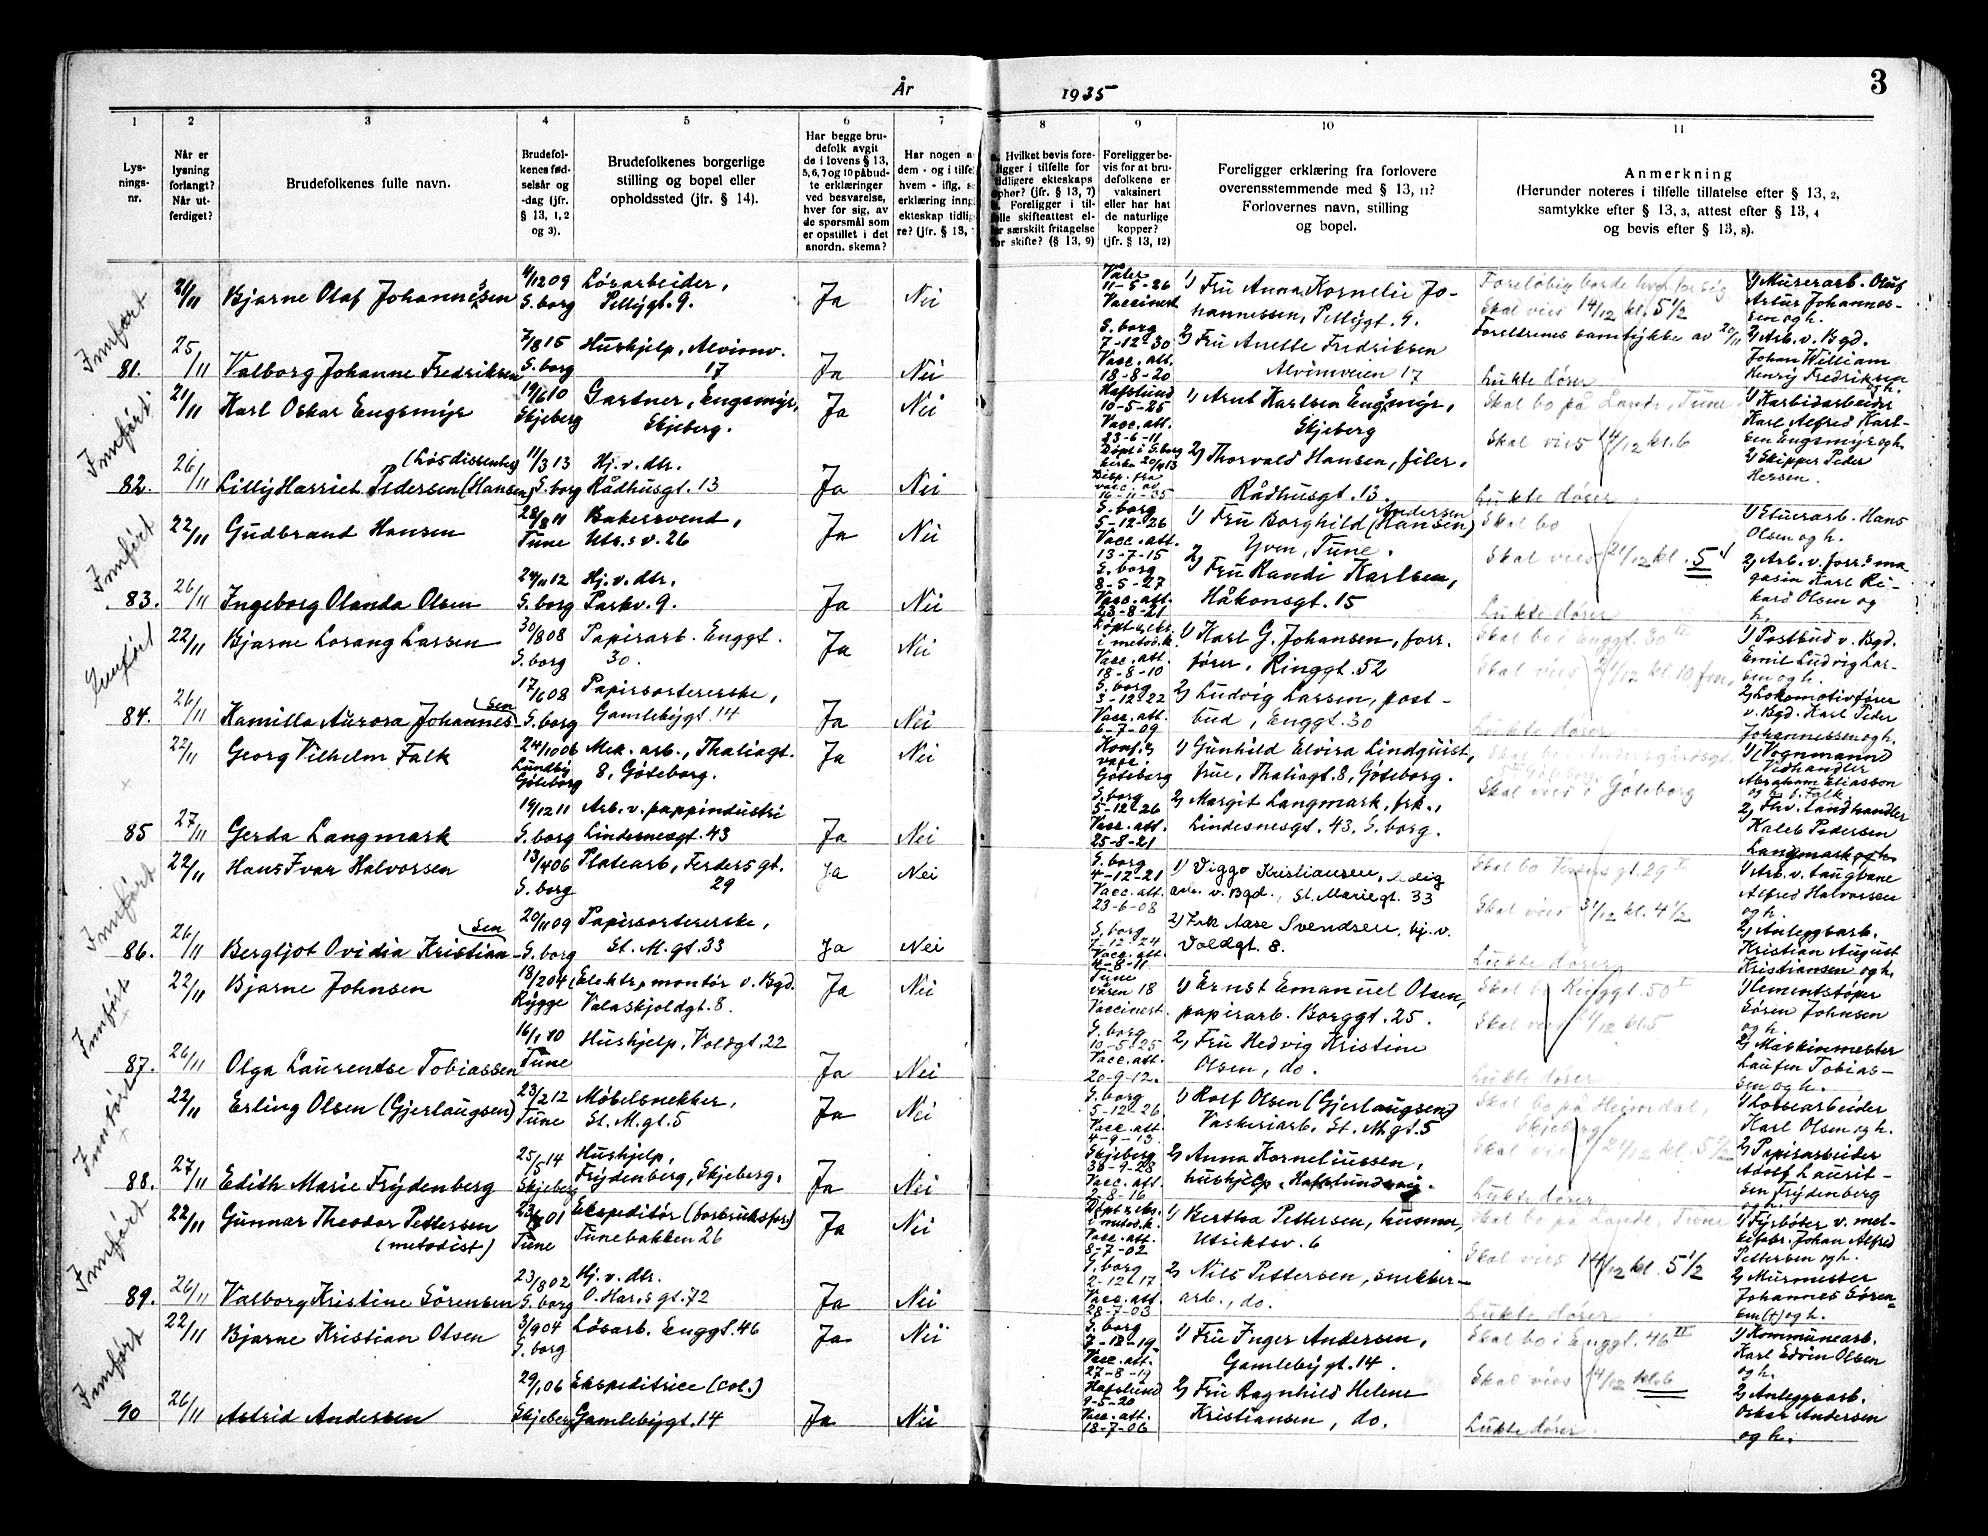 År 1935
3
1
2
3
4
5
6
7
8
9
10
11
Lys-
nings-
nr.
Når er
lysning
forlangt?
Når ut-
ferdiget?
Brudefolkenes fulle navn.
Brudefol-
kenes fød-
selsår og
-dag (jfr.
§ 13, 1, 2
og 3).
Brudefolkenes borgerlige
stilling og bopel eller
opholdssted (jfr. § 14).
Har begge bru-
defolk avgit
de i lovens § 13,
5, 6, 7 og 10 påbud-
te erklæringer
ved besvarelse,
hver for sig, av
de spørsmål som
er opstillet i det
anordn. skema?
Har nogen a
dem - og i tilfe
hvem - iflg.
erklæring inng
ekteskap tidli
re? (jfr. § 13,
Hvilket bevis fore-
ligger i tilfelle for
tidligere ekteskaps
ophør? (jfr. § 13, 7)
Foreligger i til-
felle skifteattest el-
ler særskilt fritagelse
for skifte? (§ 13, 9)
Foreligger be-
vis for at bru-
defolkene er
vaksinert
eller har hat
de naturlige
kopper?
(jfr. § 13, 12)
Foreligger erklæring fra forlovere
overensstemmende med § 13, 11?
Forlovernes navn, stilling
og bopel.
Anmerkning
(Herunder noteres i tilfelle tillatelse efter § 13, 2,
samtykke efter § 13, 3, attest efter § 13, 4
og bevis efter § 13, 8).
Innført
21/11 Bjarne Olaf Johannessen
4/12 09
S.borg
Løsarbeider,
Pellygt. 9.
Ja Nei
Våler
11-5-26
Vaccinert
1) Fru Anna Kornelie Jo-
hannessen, Pellygt. 9.
Skal vies 14/12 kl. 5 1/2
1) Murerarb. Oluf
Artur Johannes-
sen og h.
81. 25/11 Valborg Johanne Fredriksen
7/8 15
S.borg
Hushjelp, Alvimv.
17
Ja Nei
S.borg
7-12-30
Vacc. att.
18-8-20
2) Fru Anette Fredriksen
Alvimveien 17
Foreldrenes samtykke av 20/11
Lukte dører
2) Arb. v. Bgd.
Johan William
Henry Fredriksen
og h.
Innført
21/11 Karl Oskar Engsmyr
19/6 10
Skjeberg
Gartner, Engsmyr,
Skjeberg.
Ja Nei
Hafslund
10-5-25
Vacc. att.
23-6-11
1) Arnt Karlsen Engsmyr,
Skjeberg
Skal bo på Lande, Tune
Skal vies 14/12 kl. 6
1) Karbidarbeider
Karl Alfred Karl-
sen Engsmyr og h.
82. 26/11 Lilly Harriet Pedersen (Hansen)
(Løsdissenter)
11/3 13
S.borg
Hj. v. dtr.
Rådhusgt. 13
Ja Nei
Døpt i S.borg
kirke 20/4 13
Disp. fra
vacc. av
16-11-35
2) Thorvald Hansen, filer,
Rådhusgt. 13.
Lukte dører
2) Skipper Peder
Hersen.
Innført
22/11 Gudbrand Hansen
28/8 11
Tune
Bakersvend,
Utr.s v. 26
Ja Nei
S.borg
5-12-26
Vacc. att.
13-7-15
1) Fru Borghild Andersen (Hansen)
Yven, Tune.
Skal bo
Skal vies 21/12 kl. 5
1) Stuerarb. Hans
Olsen og h.
83. 26/11 Ingeborg Olanda Olsen
24/11 12
S.borg
Hj. v. dtr.
Parkv. 9.
Ja Nei
S.borg
8-5-27
Vacc. att.
23-8-21
2) Fru Randi Karlsen,
Håkonsgt. 15
Lukte dører
2) Arb. v. forr.s ma
gasin Karl Ri-
kard Olsen og
h.
Innført
22/11 Bjarne Losang Larsen
30/8 08
S.borg
Papirarb. Enggt.
30.
Ja Nei
i metod.k.
Vacc. att.
18-8-10
1) Karl G. Johansen, forr.
fører, Ringgt. 52
Skal bo i Enggt. 30 II
Skal vies 21/12 kl. 10 fm.
1) Postbud v. Bgd.
Emil Ludvig Lar-
sen og h.
84. 26/11 Kamilla Aurora Johannessen
17/6 08
S.borg
Papirsortererske,
Gamlebygt. 14
Ja Nei
S.borg
3-12-22
Vacc. att.
6-7-09
2) Ludvig Larsen, post-
bud, Enggt. 30
Lukte dører
2) Lokomotivfører
v. Bgd. Karl Peder
Johannessen og h.
22/11 Georg Vilhelm Falk
24/10 06
Lundby
Göteborg
Mek. arb., Thaliagt.
8, Göteborg.
Ja Nei
Konf. &
vacc.
Göteborg
1) Gunhild Elvira Lindquist,
frue, Thaliagt. 8, Göteborg.
Skal vies i Göteborg
1) (Vognmann)
Vedhandler
Abraham Eliasson
og h. f. Falk
85 27/11 Gerda Langmark
19/12 11
S.borg
Arb. v. pappindustri
Lindesnesgt. 43
Ja Nei
S.borg
5-12-26
Vacc. att.
25-8-21
2) Margit Langmark, frk.,
Lindesnesgt. 43, S.borg.
2) Fhv. Landhandler
Kaleb Pedersen
Langmark og h.
Innført
22/11 Hans Ivar Halvorsen
13/4 06
S.borg
Platearb, Ferders gt.
29
Ja Nei
S.borg
4-12-21
Vacc. att.
23-6-08
1) Viggo Kristiansen, ledig
arb. v. Bgd., St. Mariegt. 33
Skal bo Ferders gt. 29 I
Skal vies 31/12 kl. 4 1/2
1) Arb. v. taugbane
Alfred Halvorsen
og h.
86. 26/11 Bergljot Ovidia Kristiansen
20/11 09
S.borg
Papirsortererske,
St. M. gt. 33
Ja Nei
S.borg
7-12-24
Vacc. att.
4-8-11
2) Frk Aase Svendsen, hj. v.
Voldgt. 8.
Lukte dører
2) Anleggsarb.
Kristian August
Kristiansen og h.
Innført
22/11 Bjarne Johnsen
18/2 04
Rygge
Elektr. montør v. Bgd.
Valaskjoldgt. 8.
Ja Nei
Tune
våren 18
Vaccinert.
1) Ernst Emanuel Olsen,
papirarb. Borggt. 25.
Skal bo Ringgt. 50 I
Skal vies 21/12 kl. 5
1) Cementstøper
Søren Johnsen
og h.
87. 26/11 Olga Laurendse Tobiassen
16/1 10
Tune
Hushjelp, Voldgt. 22
Ja Nei
S.borg
10-5-25
Vacc. att.
20-9-12.
2) Fru Hedvig Kristine
Olsen, do.
Lukte dører
2) Maskinmester
Laufen Tobias-
sen og h.
Innført
22/11 Erling Olsen (Gjerlaugsen)
23/2 12
Tune
Møbelsnekker,
St. M. gt. 5
Ja Nei
S.borg
5-12-26
Vacc. att.
4-9-13
1) Rolf Olsen (Gjerlaugsen)
Vaskeriarb. St. M. gt. 5
Skal bo på Heimdal,
Skjeberg
Skal vies 21/12 kl. 5 1/2
1) Lossearbeider
Karl Olsen og h.
88. 27/11 Edith Marie Frydenberg
25/5 14
Skjeberg
Hushjelp,
Frydenberg, Skjeberg.
Ja Nei
Skjeberg
30-9-28
Vacc. att.
2-8-16
2) Anna Korneliussen,
hushjelp, Hafslundsvei.
Lukte dører
2) Papirarbeider
Adolf Laurit-
sen Frydenberg
og h.
Innført
22/11 Gunnar Theodor Pettersen
(metodist)
Tune
Ekspeditør (forbruksfor.)
Tunebakken 26
Ja Nei
i metod.k.
Vacc. att.
8-7-02
1) Bertha Pettersen, husmor,
Utsiktsv. 6
Skal bo på Lande, Tune
Skal vies 14/12 kl. 5 1/2
1) Fyrbøter v. mel-
kefabr. Johan Alfred
Pettersen og h.
89. 26/11 Valborg Kristine Sørensen
23/8 02
S.borg
Hj. v. dtr.
O. Har.s gt. 72
Ja Nei
S.borg
2-12-17
Vacc. att.
28-7-03
2) Nils Pettersen, snekker-
arb., do.
Lukte dører
2) Murmester
Johannes Søren-
sen (†) og h.
Innført
22/11 Bjarne Kristian Olsen
3/9 04
S.borg
Løsarb. Enggt. 46
Ja Nei
S.borg
7-12-19
Vacc. att.
27-8-19
1) Fru Inger Andersen,
Gamlebygt. 14.
Skal bo i Enggt. 46 II
Skal vies 14/12 kl. 6
1) Kommunearb.
Karl Edvin Olsen
og h.
90 26/11 Astrid Andersen
29/1 06
Skjeberg
Ekspeditrice (col.)
Gamlebygt. 14
Ja Nei
Hafslund
9-5-20
Vacc. att.
18-7-06
2) Fru Ragnhild Helene
Kristiansen, do.
Lukte dører
2) Anleggsarb.
Oskar Andersen
og h.